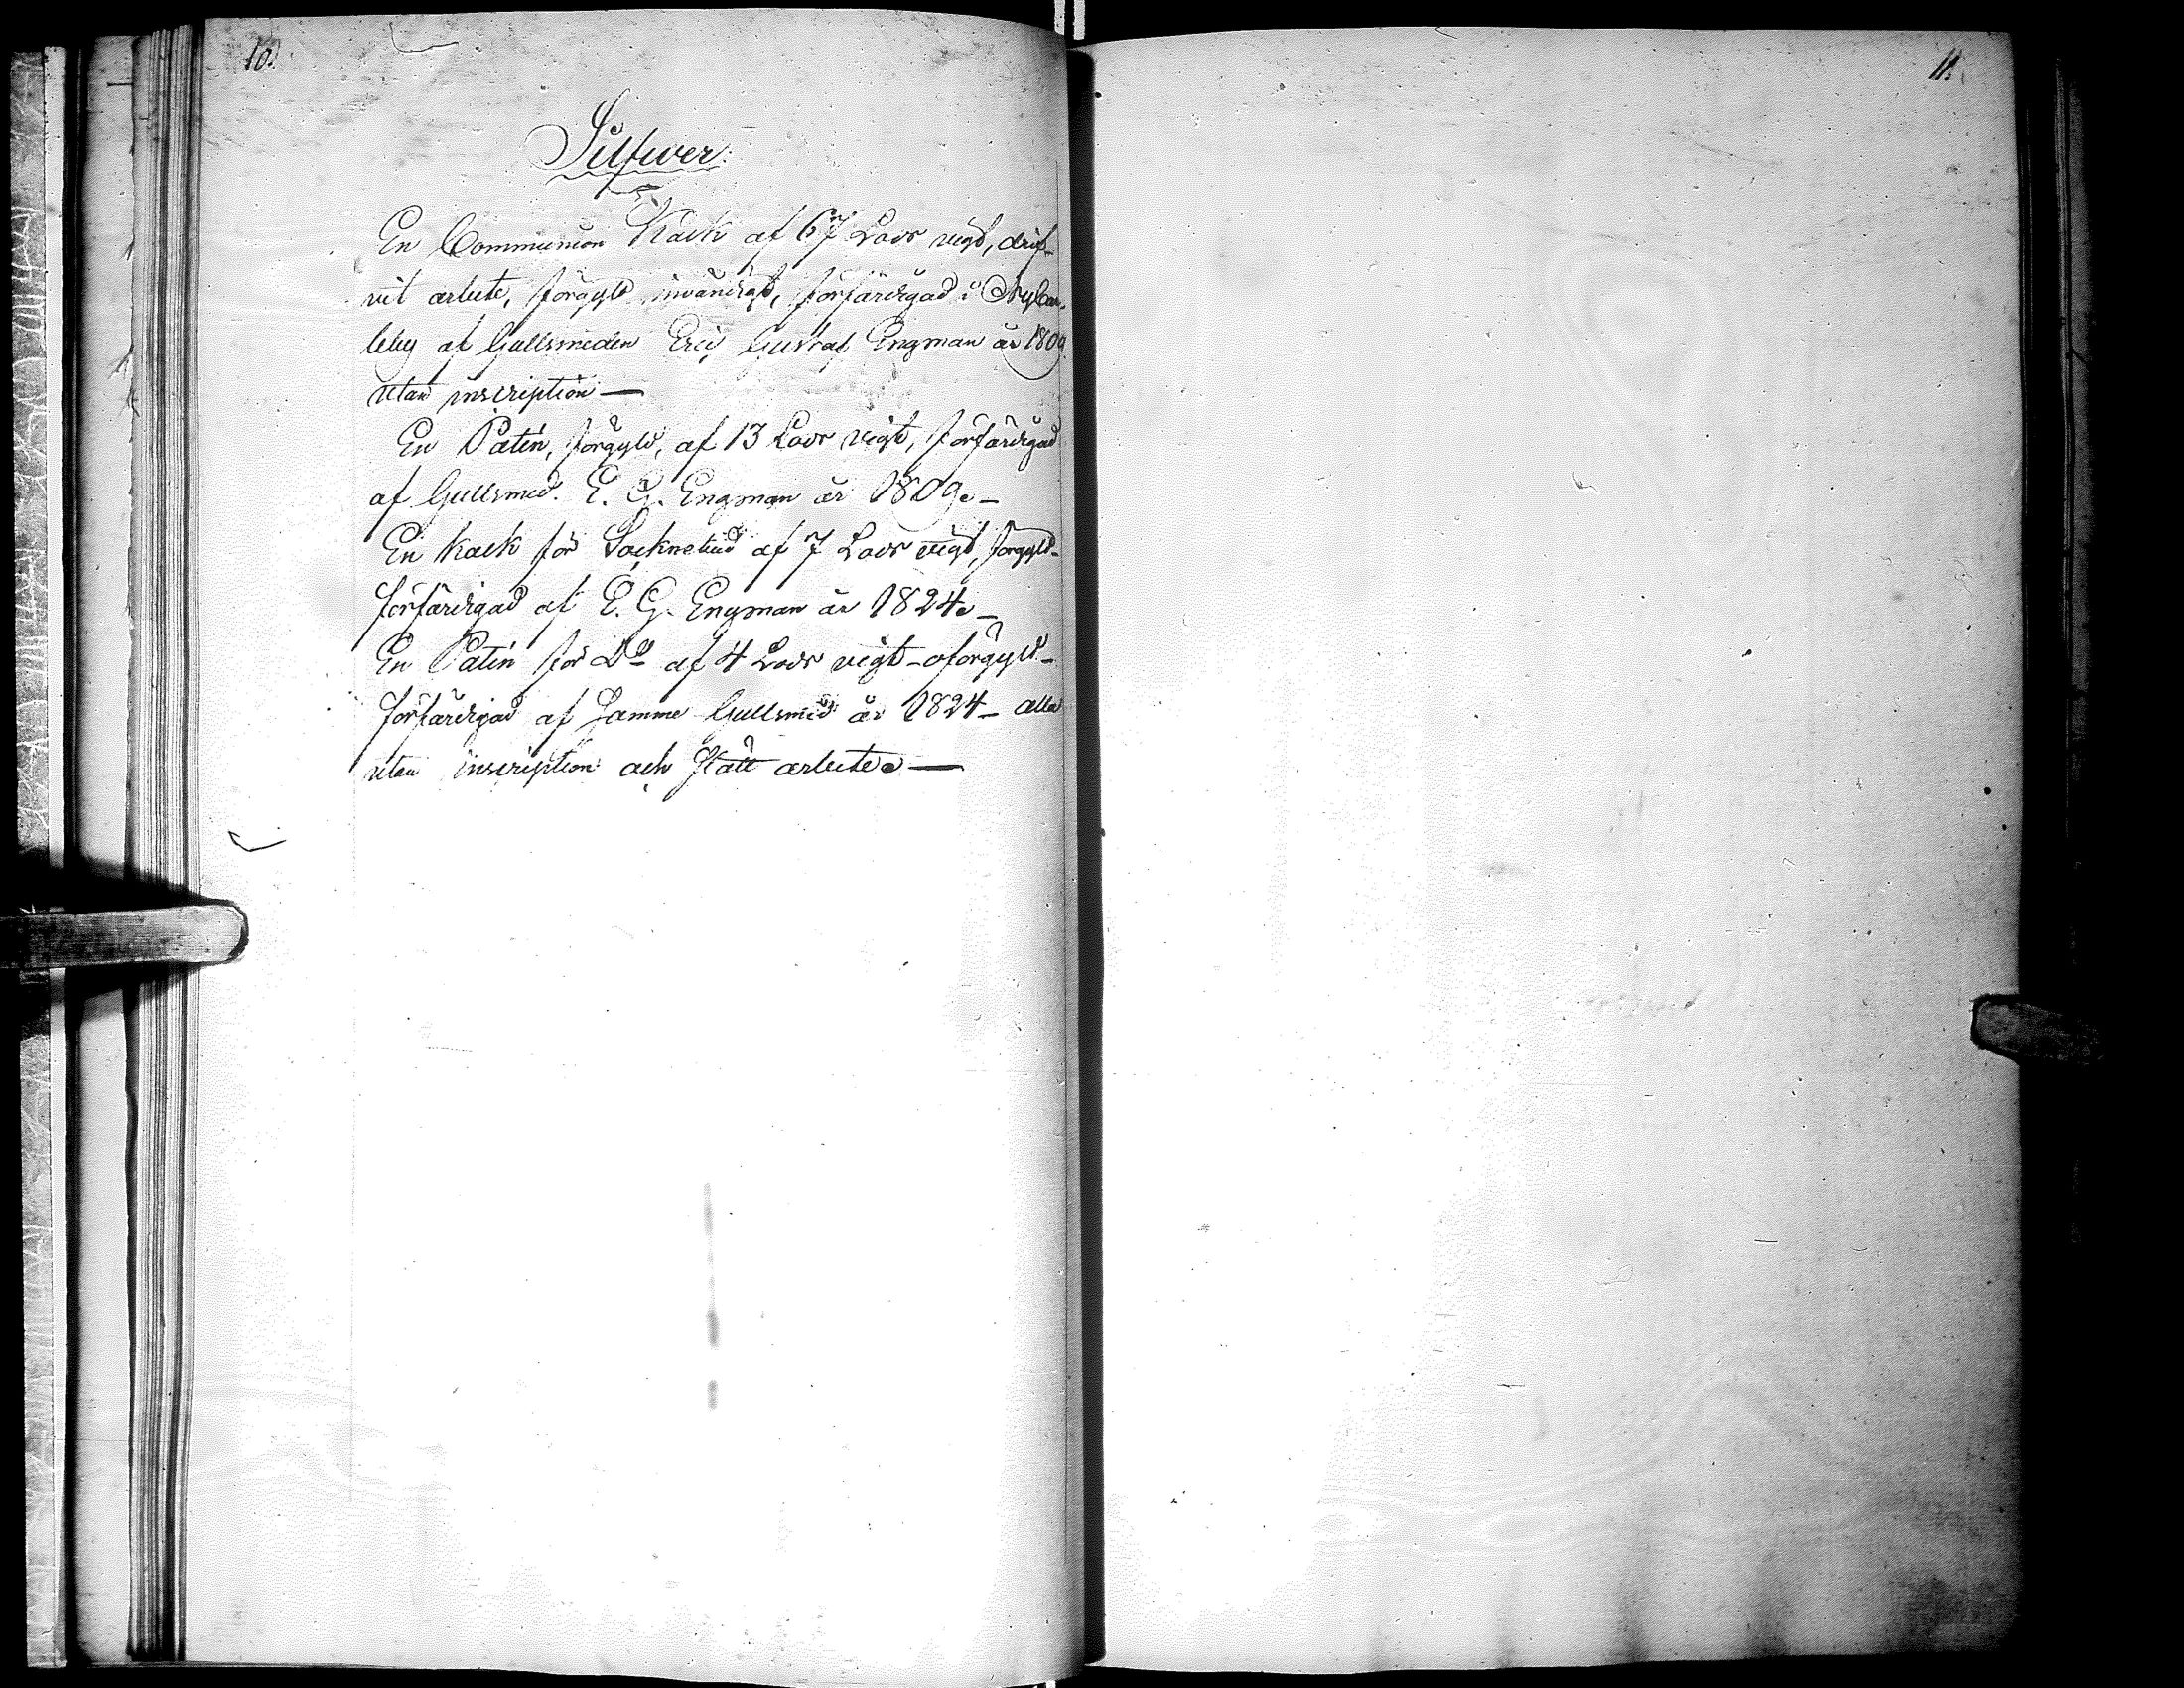 10.
11.
Silfwer.
En Communion Kalk af 67 Lods vigt, drif-
vit arbete, förgyld invändigt, förfärdigad i Nycar-
leby af Gullsmeden Eric Gustaf Engman år 1809.
utan inscription —
En Patén, förgyld, af 13 Lods vigt, förfärdigad
af Gullsmed. E. G. Engman år 1809. –
En kalk för Socknebud af 7 Lods vigt, förgyld–
förfärdigad af E. G. Engman år 1824. –
En Patén för Do af 4 Lods vigt – oförgyld –
förfärdigad af samme Gullsmed år 1824 – alla
utan inscription och slätt arbete. —